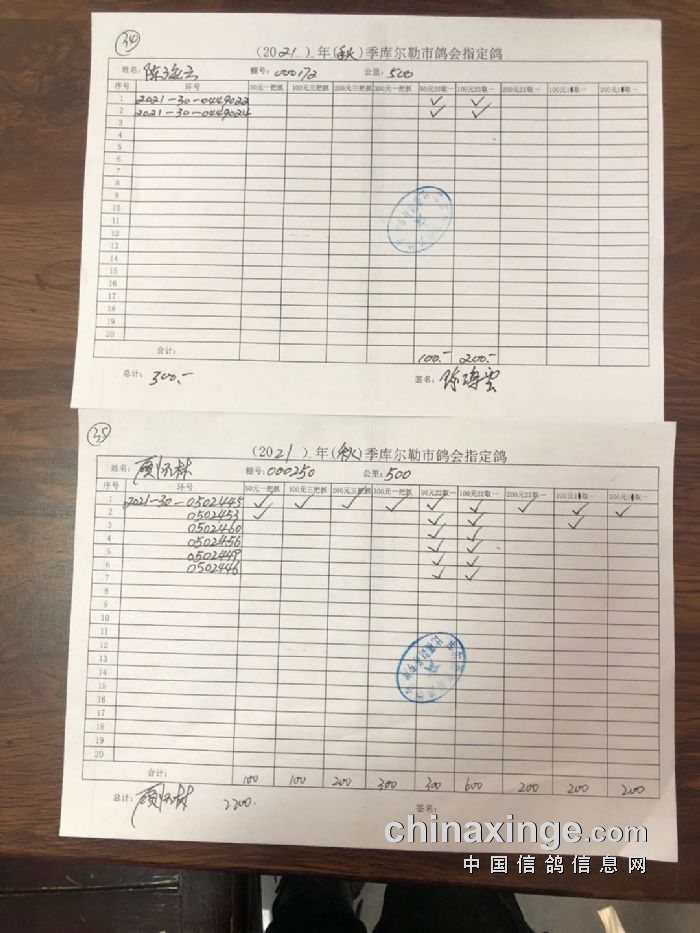 34
(2021)年(秋)季库尔勒市鸽会指定鸽
姓名: 陈 棚号: 000172 公里: 500
序号 环号 50元一把抓 100元三把抓 200元三把抓 300元一把抓 50元22取一 100元22取一 200元22取一 100元1取一 200元1取一
1 2021-30-0449022 ✓ ✓
2 2021-30-0449024 ✓ ✓
3
4
5
6
7
8
9
10
11
12
13
14
15
16
17
18
19
20
合计: 100.- 200.-
总计: 300.- 签名: 陈
35
(2021)年(秋)季库尔勒市鸽会指定鸽
姓名: 顾怀林 棚号: 000250 公里: 500
序号 环号 50元一把抓 100元三把抓 200元三把抓 300元一把抓 50元22取一 100元22取一 200元22取一 100元1取一 200元1取一
1 2021-30-0502445 ✓ ✓ ✓ ✓ ✓ ✓ ✓ ✓ ✓
2 0502453 ✓ ✓ ✓ ✓
3 0502460 ✓ ✓
4 0502456 ✓ ✓
5 0502449 ✓ ✓
6 0502446 ✓ ✓
7
8
9
10
11
12
13
14
15
16
17
18
19
20
合计: 100 100 200 300 300 600 200 200 200
总计: 顾怀林 2200. 签名:
chinaxinge.com
中国信鸽信息网